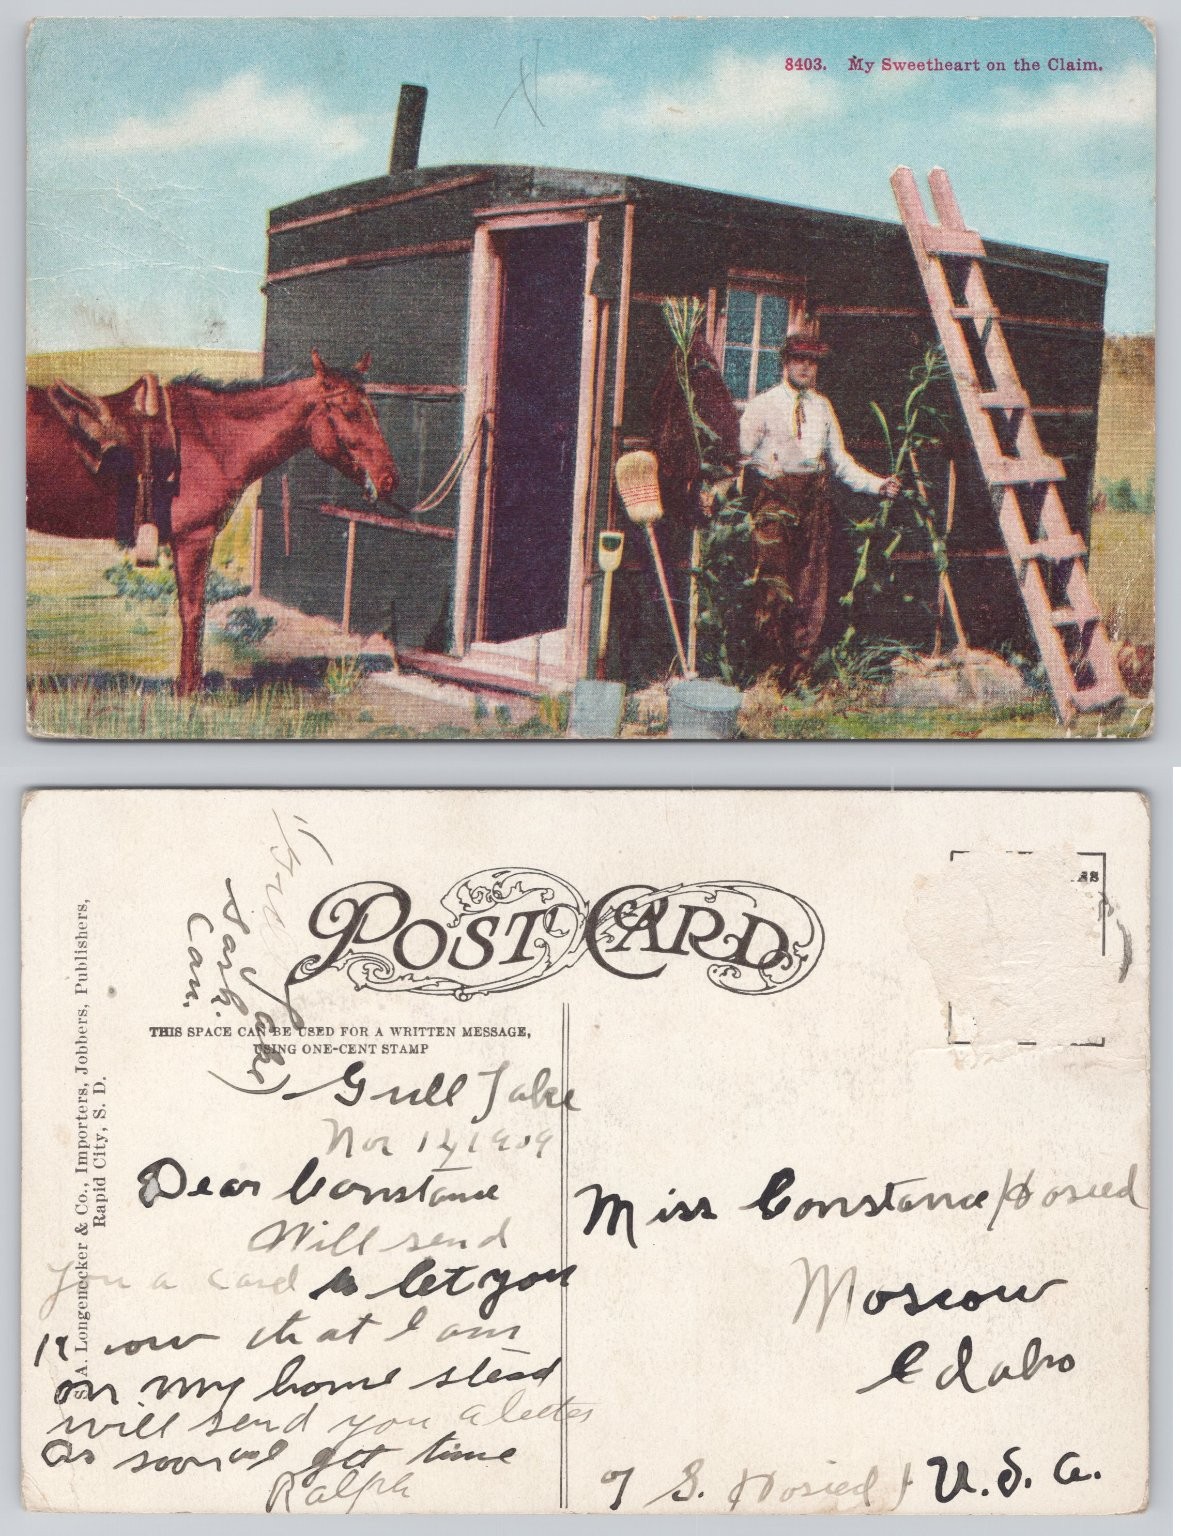 8403. My Sweetheart on the Claim.
POST CARD
THIS SPACE CAN BE USED FOR A WRITTEN MESSAGE,
USING ONE-CENT STAMP
S. A. Longenecker & Co., Importers, Jobbers, Publishers,
Rapid City, S. D.
Sask.
Can.
Gull Lake
Nov 1909
Dear Constance
Will send
you a card to let you
know that I am
on my home stead
will send you a letter
as soon as I get time
Ralph
Miss Constance
Moscow
Idaho
U.S.A.